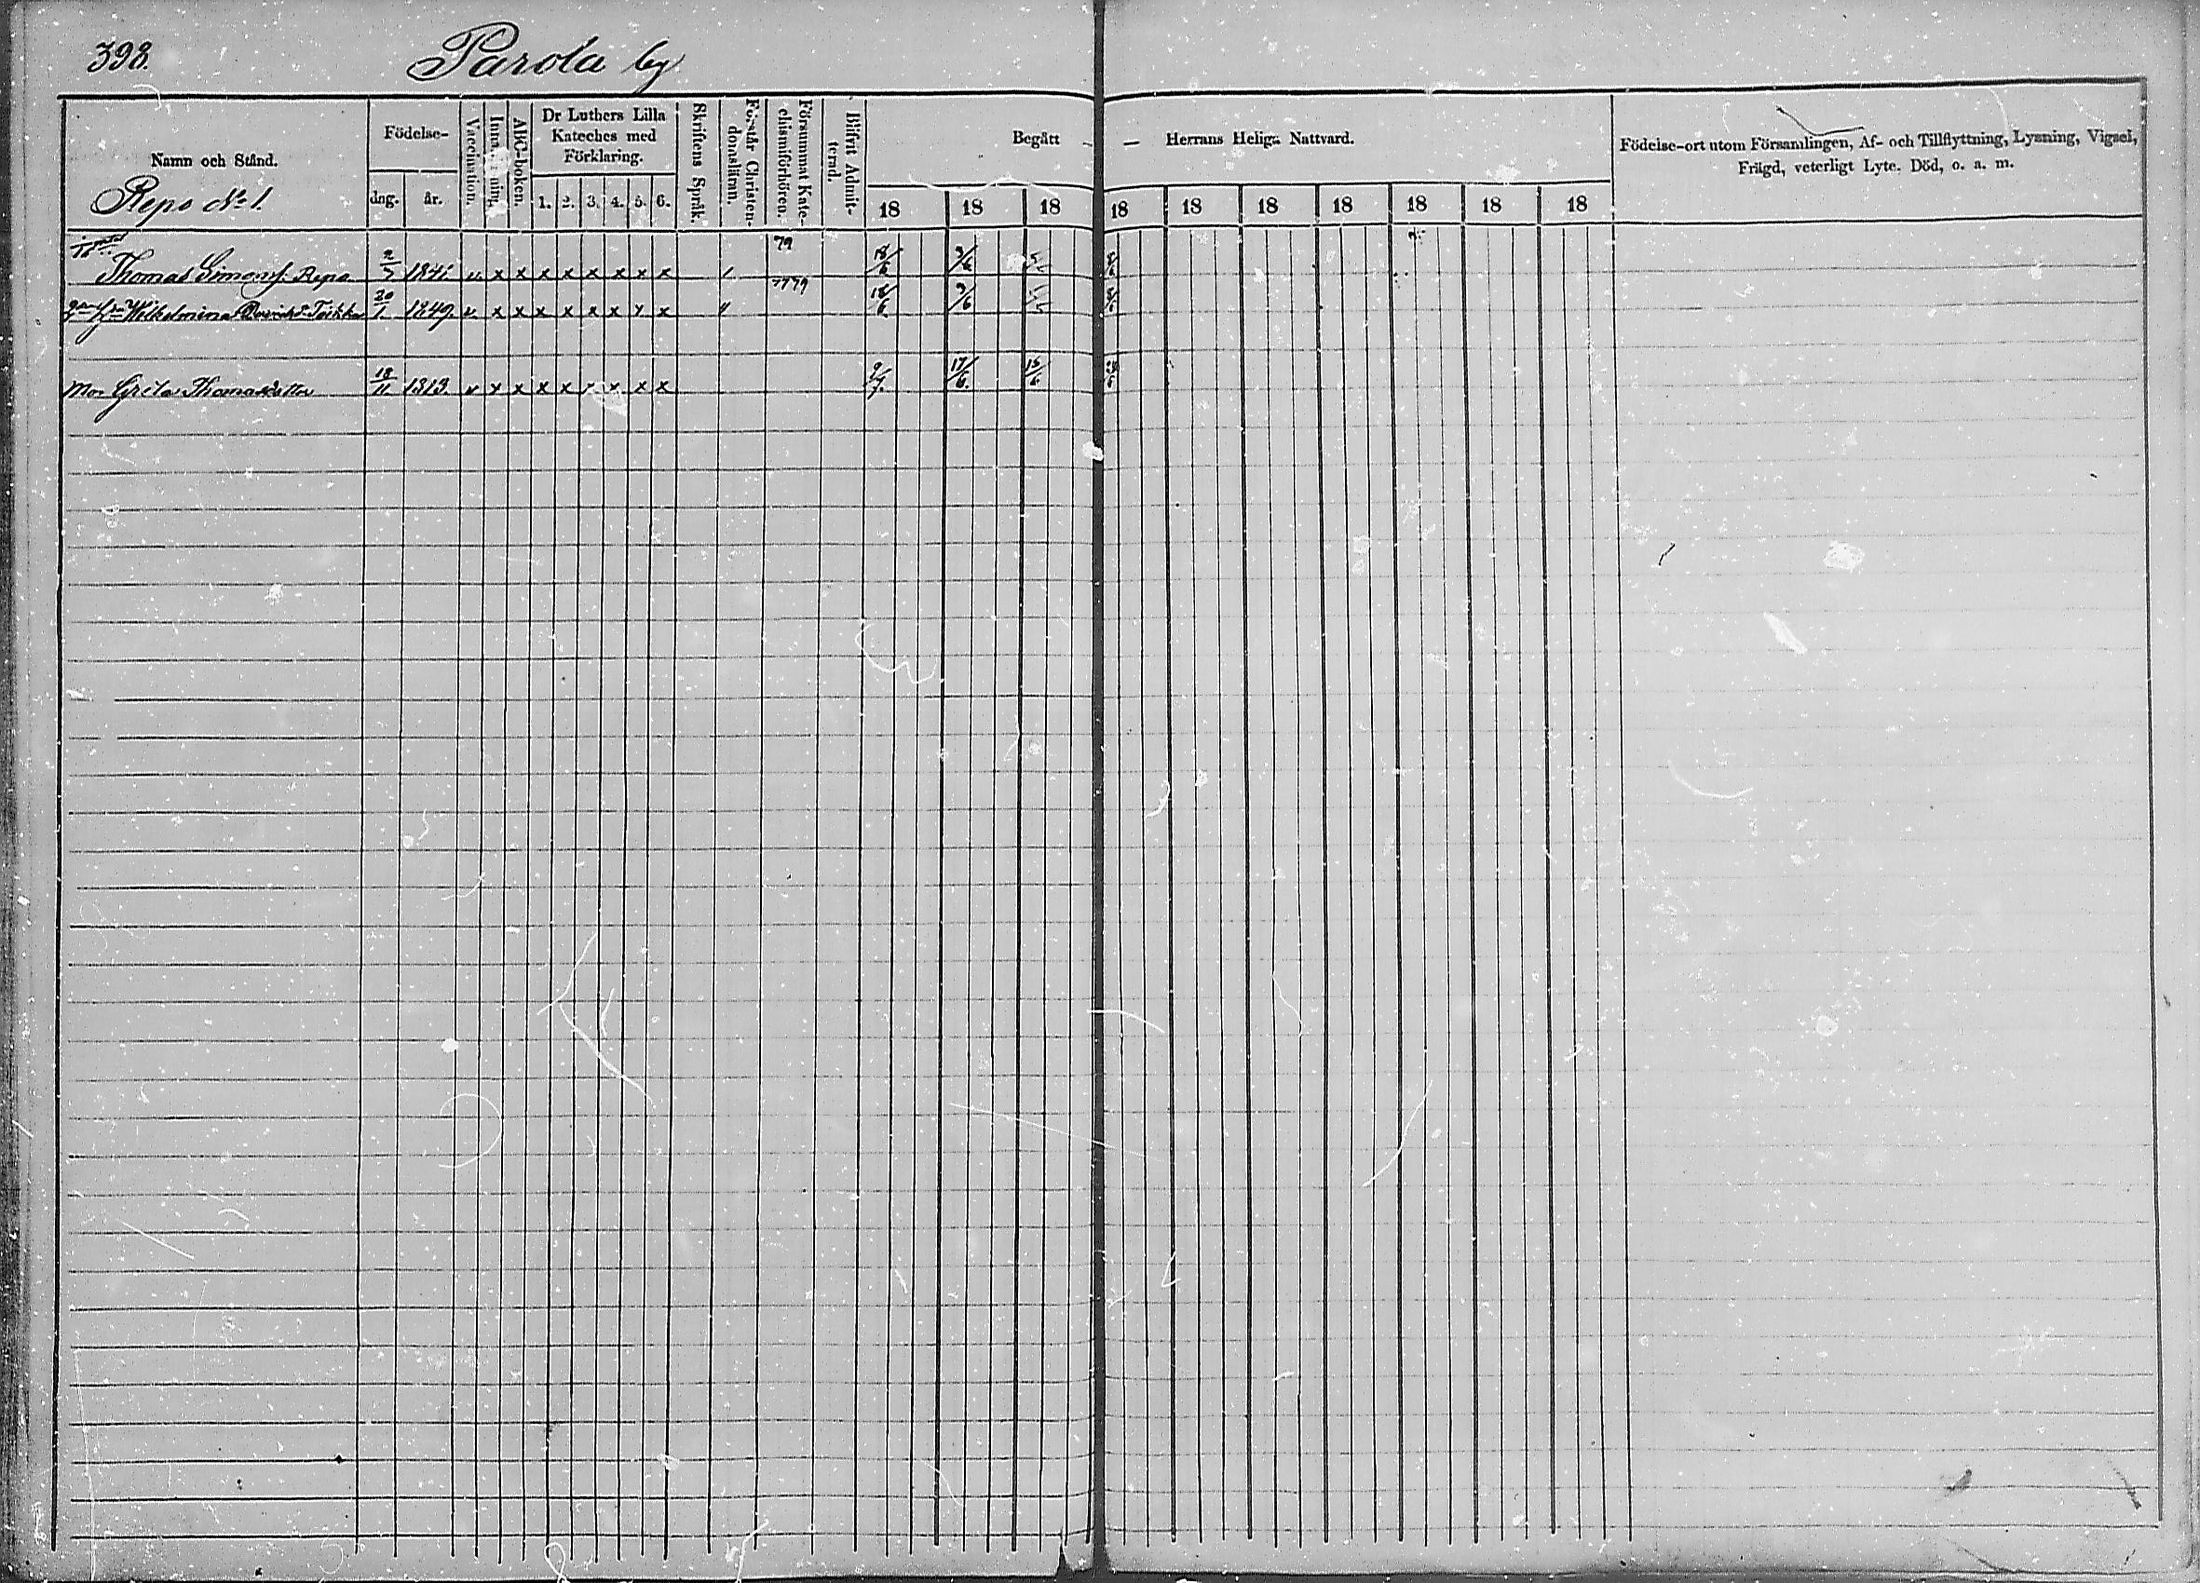 398.
Parola by
Namn och Stånd.
Repo No 1.
Födelse-
dag.
år.
Vaccination.
ABC-boken.
Dr Luthers Lilla
Kateches med
Förklaring.
1. 2. 3. 4. 5. 6.
Skriftens Språk.
Förstår Christen-
domsläran.
Försummat Kate-
chismiförhören.
Blifvit Admit-
terad.
Begått — Herrans Heliga Nattvard.
18 18 18 18 18 18 18 18 18 18
Födelse-ort utom Församlingen, Af- och Tillflyttning, Lysning, Vigsel,
Frägd, veterligt Lyte, Död, o. a. m.
79
Thomas Simons. Repo 1841. v x x x x x x x x 18/6 3/6
79
Wilhelmina 20/1. 1849. v x x x x x x x x 18/6 3/6
Mor Greta Thomasdotter 18/11. 1813. v x x x x x x x x 9/7. 17/6. 15/6